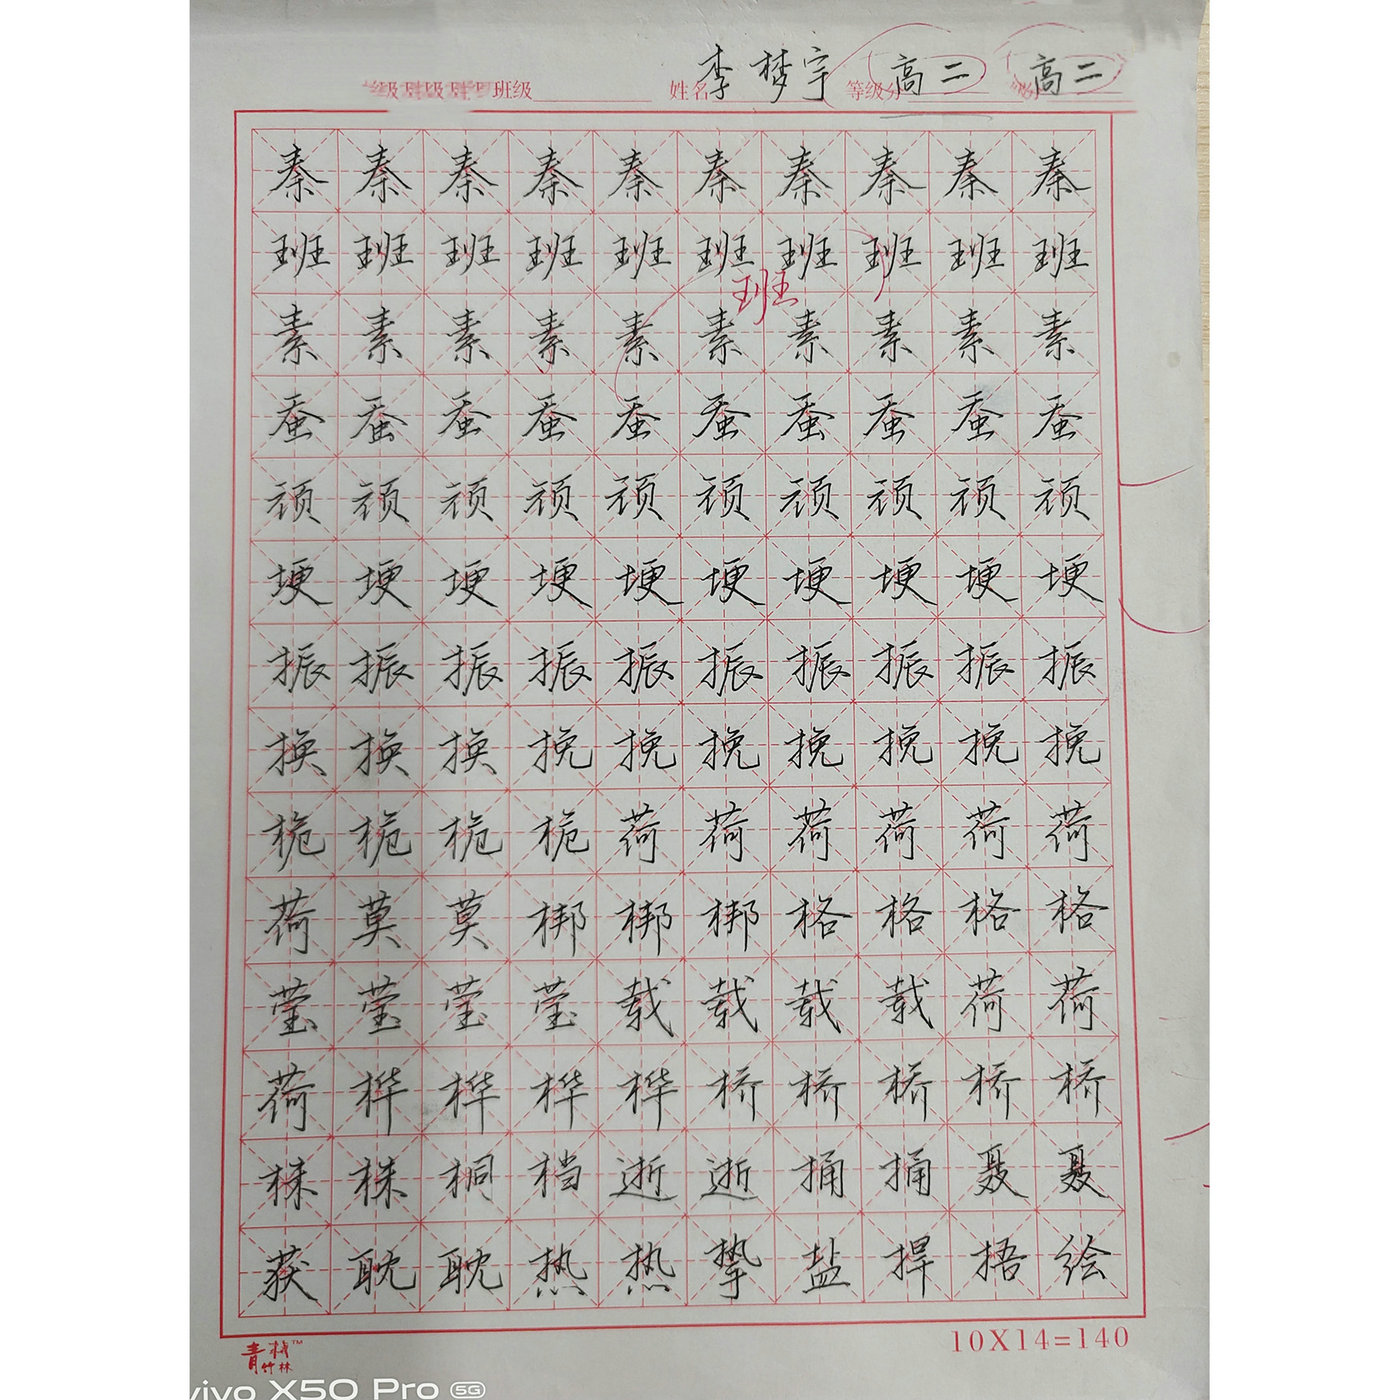 班级 姓名 李梦宇 等级分 高二 高二
秦秦秦秦秦秦秦秦秦秦
班班班班班班班班班班
班
素素素素素素素素素素
蚕蚕蚕蚕蚕蚕蚕蚕蚕蚕
顽顽顽顽顽顽顽顽顽顽
埂埂埂埂埂埂埂埂埂埂
振振振振振振振振振振
换换换挽挽挽挽挽挽挽
桅桅桅桅荷荷荷荷荷荷
荷莫莫梆梆梆格格格格
莹莹莹莹载载载载荷荷
荷桦桦桦桦桥桥桥桥桥
株株桐档逝逝捅捅聂聂
获耽耽热热挚盐捍捂绘
青栈™
竹林
10X14=140
vivo X50 Pro 5G